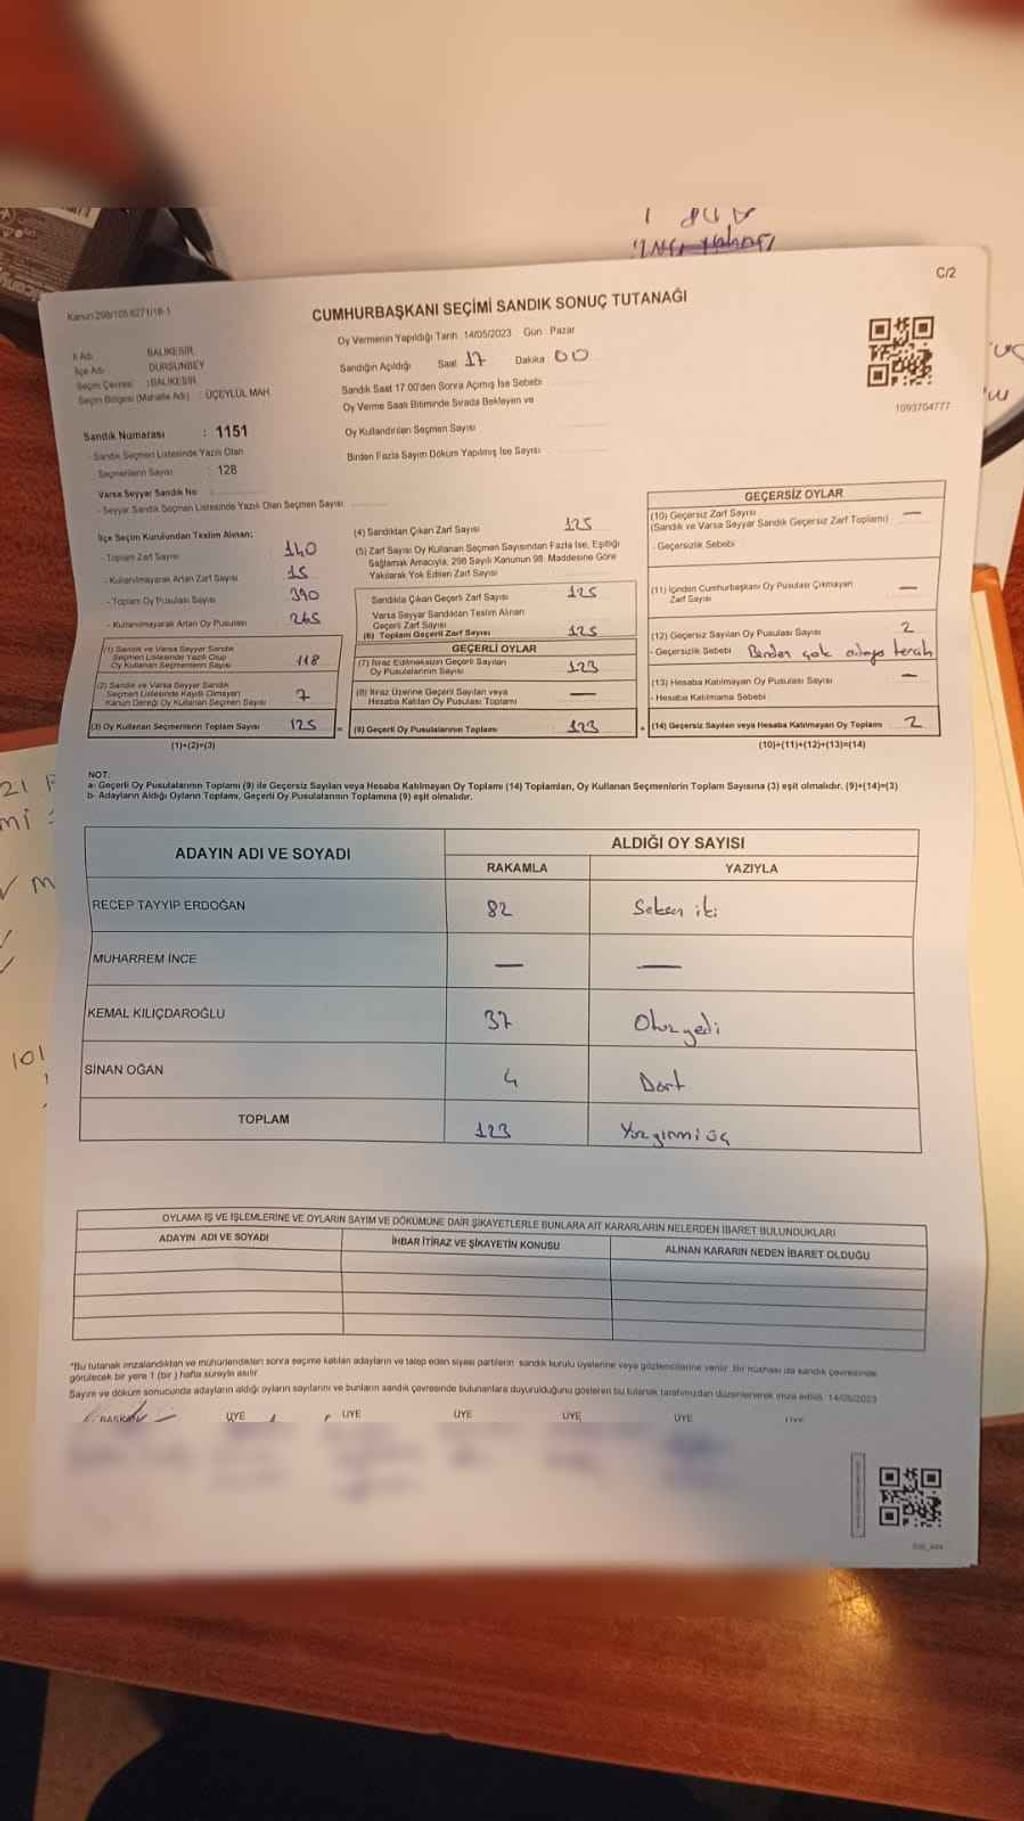 C/2
Kanun 298/105 6271/18-1
CUMHURBAŞKANI SEÇİMİ SANDIK SONUÇ TUTANAĞI
İl Adı BALIKESİR
İlçe Adı DURSUNBEY
Seçim Çevresi :BALIKESİR
Seçim Bölgesi (Mahalle Adı) : ÜÇEYLÜL MAH.
Sandık Numarası : 1151
Sandık Seçmen Listesinde Yazılı Olan
Seçmenlerin Sayısı : 128
Varsa Seyyar Sandık No
- Seyyar Sandık Seçmen Listesinde Yazılı Olan Seçmen Sayısı
Oy Vermenin Yapıldığı Tarih 14/05/2023 Gün : Pazar
Sandığın Açıldığı Saat 17 Dakika 00
Sandık Saat 17.00'den Sonra Açılmış İse Sebebi
Oy Verme Saati Bitiminde Sırada Bekleyen ve
Oy Kullandırılan Seçmen Sayısı
Birden Fazla Sayım Döküm Yapılmış İse Sayısı
1093704777
İlçe Seçim Kurulundan Teslim Alınan;
- Toplam Zarf Sayısı 140
- Kullanılmayarak Artan Zarf Sayısı 15
- Toplam Oy Pusulası Sayısı 390
- Kullanılmayarak Artan Oy Pusulası 265
(1) Sandık ve Varsa Seyyar Sandık
Seçmen Listesinde Yazılı Olup
Oy Kullanan Seçmenlerin Sayısı 118
(2) Sandık ve Varsa Seyyar Sandık
Seçmen Listesinde Kayıtlı Olmayan
Kanun Gereği Oy Kullanan Seçmen Sayısı 7
(3) Oy Kullanan Seçmenlerin Toplam Sayısı 125
(1)+(2)=(3)
(4) Sandıktan Çıkan Zarf Sayısı 125
(5) Zarf Sayısı Oy Kullanan Seçmen Sayısından Fazla İse, Eşitliği
Sağlamak Amacıyla, 298 Sayılı Kanunun 98. Maddesine Göre
Yakılarak Yok Edilen Zarf Sayısı
Sandıkta Çıkan Geçerli Zarf Sayısı 125
Varsa Seyyar Sandıktan Teslim Alınan
Geçerli Zarf Sayısı
(6) Toplam Geçerli Zarf Sayısı 125
GEÇERLİ OYLAR
(7) İtiraz Edilmeksizin Geçerli Sayılan
Oy Pusulalarının Sayısı 123
(8) İtiraz Üzerine Geçerli Sayılan veya
Hesaba Katılan Oy Pusulası Toplamı —
(9) Geçerli Oy Pusulalarının Toplamı 123
GEÇERSİZ OYLAR
(10) Geçersiz Zarf Sayısı —
(Sandık ve Varsa Seyyar Sandık Geçersiz Zarf Toplamı)
- Geçersizlik Sebebi
(11) İçinden Cumhurbaşkanı Oy Pusulası Çıkmayan
Zarf Sayısı —
(12) Geçersiz Sayılan Oy Pusulası Sayısı 2
- Geçersizlik Sebebi Birden çok adaya tercih
(13) Hesaba Katılmayan Oy Pusulası Sayısı —
- Hesaba Katılmama Sebebi
(14) Geçersiz Sayılan veya Hesaba Katılmayan Oy Toplamı 2
(10)+(11)+(12)+(13)=(14)
NOT:
a- Geçerli Oy Pusulalarının Toplamı (9) ile Geçersiz Sayılan veya Hesaba Katılmayan Oy Toplamı (14) Toplamları, Oy Kullanan Seçmenlerin Toplam Sayısına (3) eşit olmalıdır. (9)+(14)=(3)
b- Adayların Aldığı Oyların Toplamı, Geçerli Oy Pusulalarının Toplamına (9) eşit olmalıdır.
ADAYIN ADI VE SOYADI ALDIĞI OY SAYISI
RAKAMLA YAZIYLA
RECEP TAYYİP ERDOĞAN 82 Seksen iki
MUHARREM İNCE — —
KEMAL KILIÇDAROĞLU 37 Otuzyedi
SİNAN OĞAN 4 Dört
TOPLAM 123 Yüzyirmi üç
OYLAMA İŞ VE İŞLEMLERİNE VE OYLARIN SAYIM VE DÖKÜMÜNE DAİR ŞİKAYETLERLE BUNLARA AİT KARARLARIN NELERDEN İBARET BULUNDUKLARI
ADAYIN ADI VE SOYADI İHBAR İTİRAZ VE ŞİKAYETİN KONUSU ALINAN KARARIN NEDEN İBARET OLDUĞU
*Bu tutanak imzalandıktan ve mühürlendikten sonra seçime katılan adayların ve talep eden siyasi partilerin sandık kurulu üyelerine veya gözlemcilerine verilir. Bir nüshası da sandık çevresinde
görülecek bir yere 1 (bir ) hafta süreyle asılır.
Sayım ve döküm sonucunda adayların aldığı oyların sayılarını ve bunların sandık çevresinde bulunanlara duyurulduğunu gösteren bu tutanak tarafımızdan düzenlenerek imza edildi. 14/05/2023
BAŞKAN ÜYE ÜYE ÜYE ÜYE ÜYE ÜYE
101